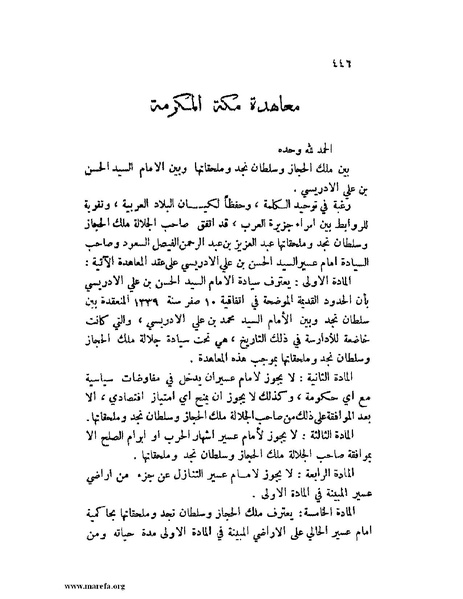 ٤٤٦
معاهدة مكة المكرمة
الحمد لله وحده
بين ملك الحجاز وسلطان نجد وملحقاتها وبين الامام السيد الحسن
بن علي الادريسي .
رغبة في توحيد الكلمة ، وحفظاً لكيـــان البلاد العربية ، وتقوية
للروابط بين امراء جزيرة العرب ، قد اتفق صاحب الجلالة ملك الحجاز
وسلطان نجد وملحقاتها عبد العزيز بن عبد الرحمن الفيصل السعود وصاحب
السيادة امام عسير السيد الحسن بن علي الادريسي على عقد المعاهدة الآتية :
المادة الاولى : يعترف سيادة الامام السيد الحسن بن علي الادريسي
بأن الحدود القديمة الموضحة في اتفاقية ١٠ صفر سنة ١٣٣٩ المنعقدة بين
سلطان نجد وبين الأمام السيد محمد بن علي الادريسي ، والتي كانت
خاضعة للأدارسة في ذلك التاريخ ، هي تحت سيادة جلالة ملك الحجاز
وسلطان نجد وملحقاتها بموجب هذه المعاهدة .
المادة الثانية : لا يجوز لامام عسير ان يدخل في مفاوضات سياسية
مع اي حكومة ، وكذلك لا يجوز ان يمنح اي امتياز اقتصادي ، الا
بعد الموافقة على ذلك من صاحب الجلالة ملك الحجاز وسلطان نجد وملحقاتها .
المادة الثالثة : لا يجوز لأمام عسير اشهار الحرب او ابرام الصلح الا
بموافقة صاحب الجلالة ملك الحجاز وسلطان نجد وملحقاتها .
المادة الرابعة : لا يجوز لامـام عسير التنازل عن جزء من اراضي
عسير المبينة في المادة الاولى .
المادة الخامسة : يعترف ملك الحجاز وسلطان نجد وملحقاتها بحاكمية
امام عسير الحالي على الاراضي المبينة في المادة الاولى مدة حياته ومن
www.marefa.org